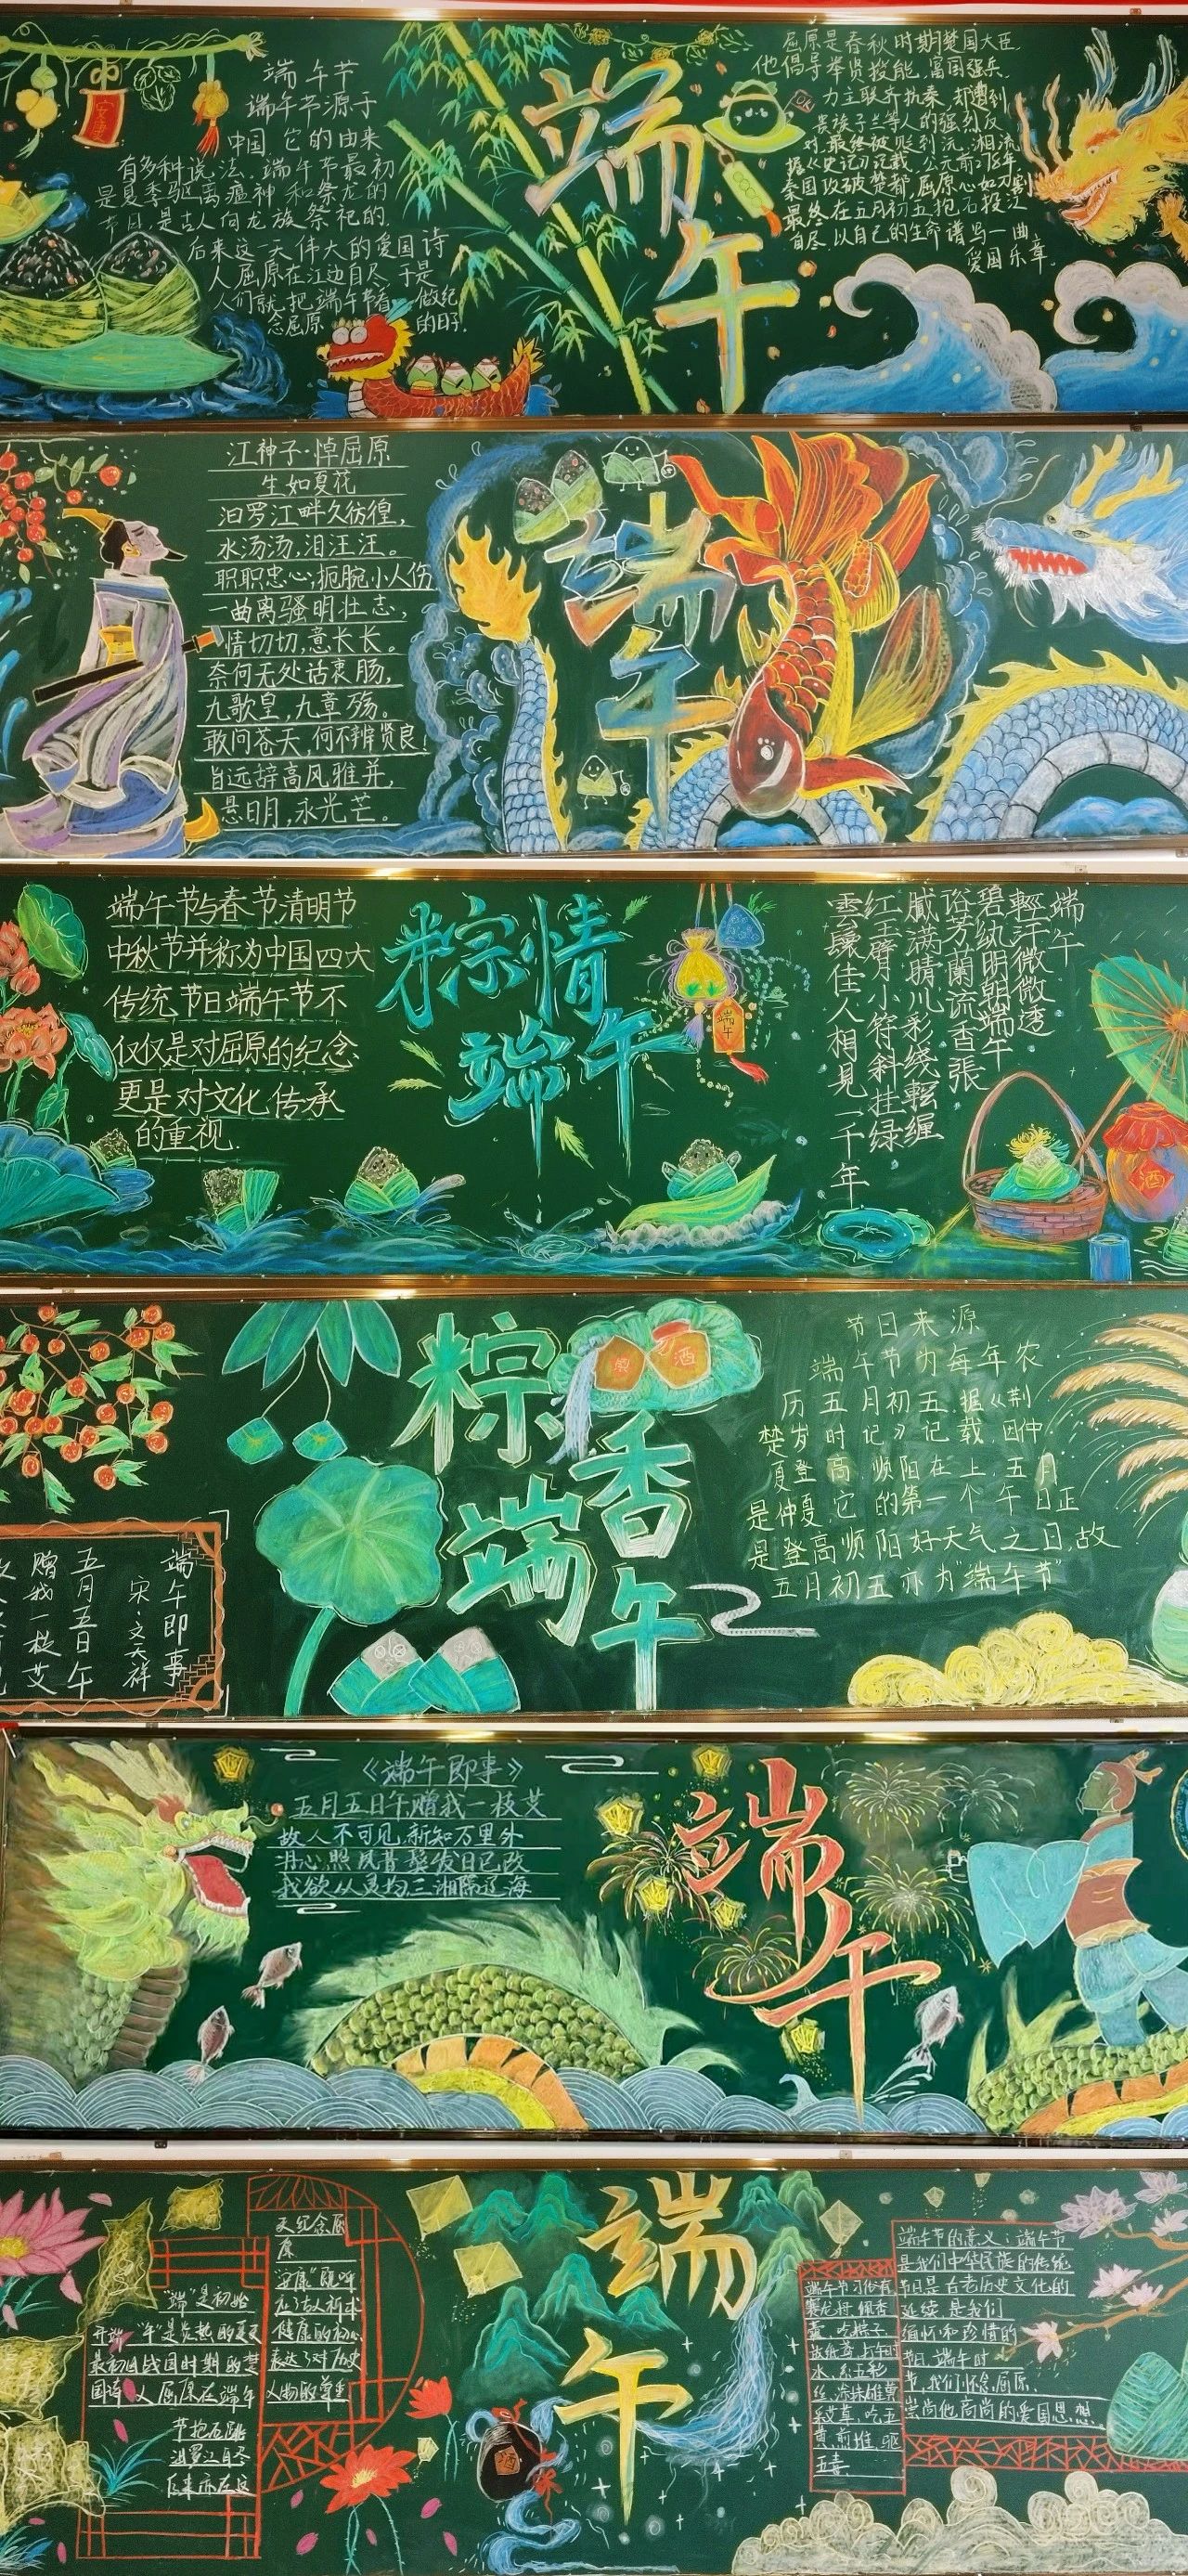 安康
端午节
端午节源于
中国,它的由来
有多种说法,端午节最初
是夏季驱离瘟神和祭龙的
节日,是古人向龙族祭祀的.
后来这一天伟大的爱国诗
人屈原在江边自尽于是
人们就把端午节看做纪
念屈原的日子.
端午
屈原是春秋时期楚国大臣
他倡导举贤授能,富国强兵.
力主联齐抗秦,却遭到
贵族子兰等人的强烈反
对,最终被贬到沅、湘流
据《史记》记载,公元前278年
秦国攻破楚都,屈原心如刀割
最终在五月初五抱石投江
自尽,以自己的生命谱写一曲
爱国乐章.
江神子·悼屈原
生如夏花
汩罗江畔久彷徨,
水汤汤,泪汪汪。
职职忠心,扼腕小人伤
一曲离骚明壮志,
情切切,意长长。
奈何无处话衷肠,
九歌皇,九章殇。
敢问苍天,何不辨贤良!
旨远辞高风雅并,
悬日月,永光芒。
端午
端午节与春节清明节
中秋节并称为中国四大
传统节日端午节不
仅仅是对屈原的纪念
更是对文化传承
的重视.
粽情
端午
端午
端午
輕汗微微透
碧纨明朝端午
浴芳蘭流香張
膩满晴川彩线輕缠
红玉臂小符斜挂绿
雲鬟佳人相見一千年
酒
端午即事
宋·文天祥
五月五日午
赠我一枝艾
粽香
端午
酒
节日来源
端午节为每年农
历五月初五,据《荆
楚岁时记》记载,因仲
夏登高,顺阳在上,五月
是仲夏,它的第一个午日正
是登高顺阳好天气之日,故
五月初五亦为"端午节"
《端午即事》
五月五日午,赠我一枝艾
故人不可见,新知万里外
丹心照夙昔,鬓发日已改
我欲从灵均,三湘隔辽海
端午
"端"是初始
开端,"午"是炎热的夏天
最初因战国时期的楚
国诗人屈原在端午
节抱石跳
汨罗江自尽
后来亦在这
天纪念屈
原
"安康"
古人祈求
健康的初心
表达了对历史
人物的尊重
端午
酒
端午节习俗有
赛龙舟、佩香
囊、吃粽子、
放纸鸢
五毒
端午节的意义:端午节
是我们中华民族的传统
节日是古老历史文化的
延续,是我们
缅怀和珍惜的
节日,端午时
节,我们怀念屈原,
崇尚他高尚的爱国思想.